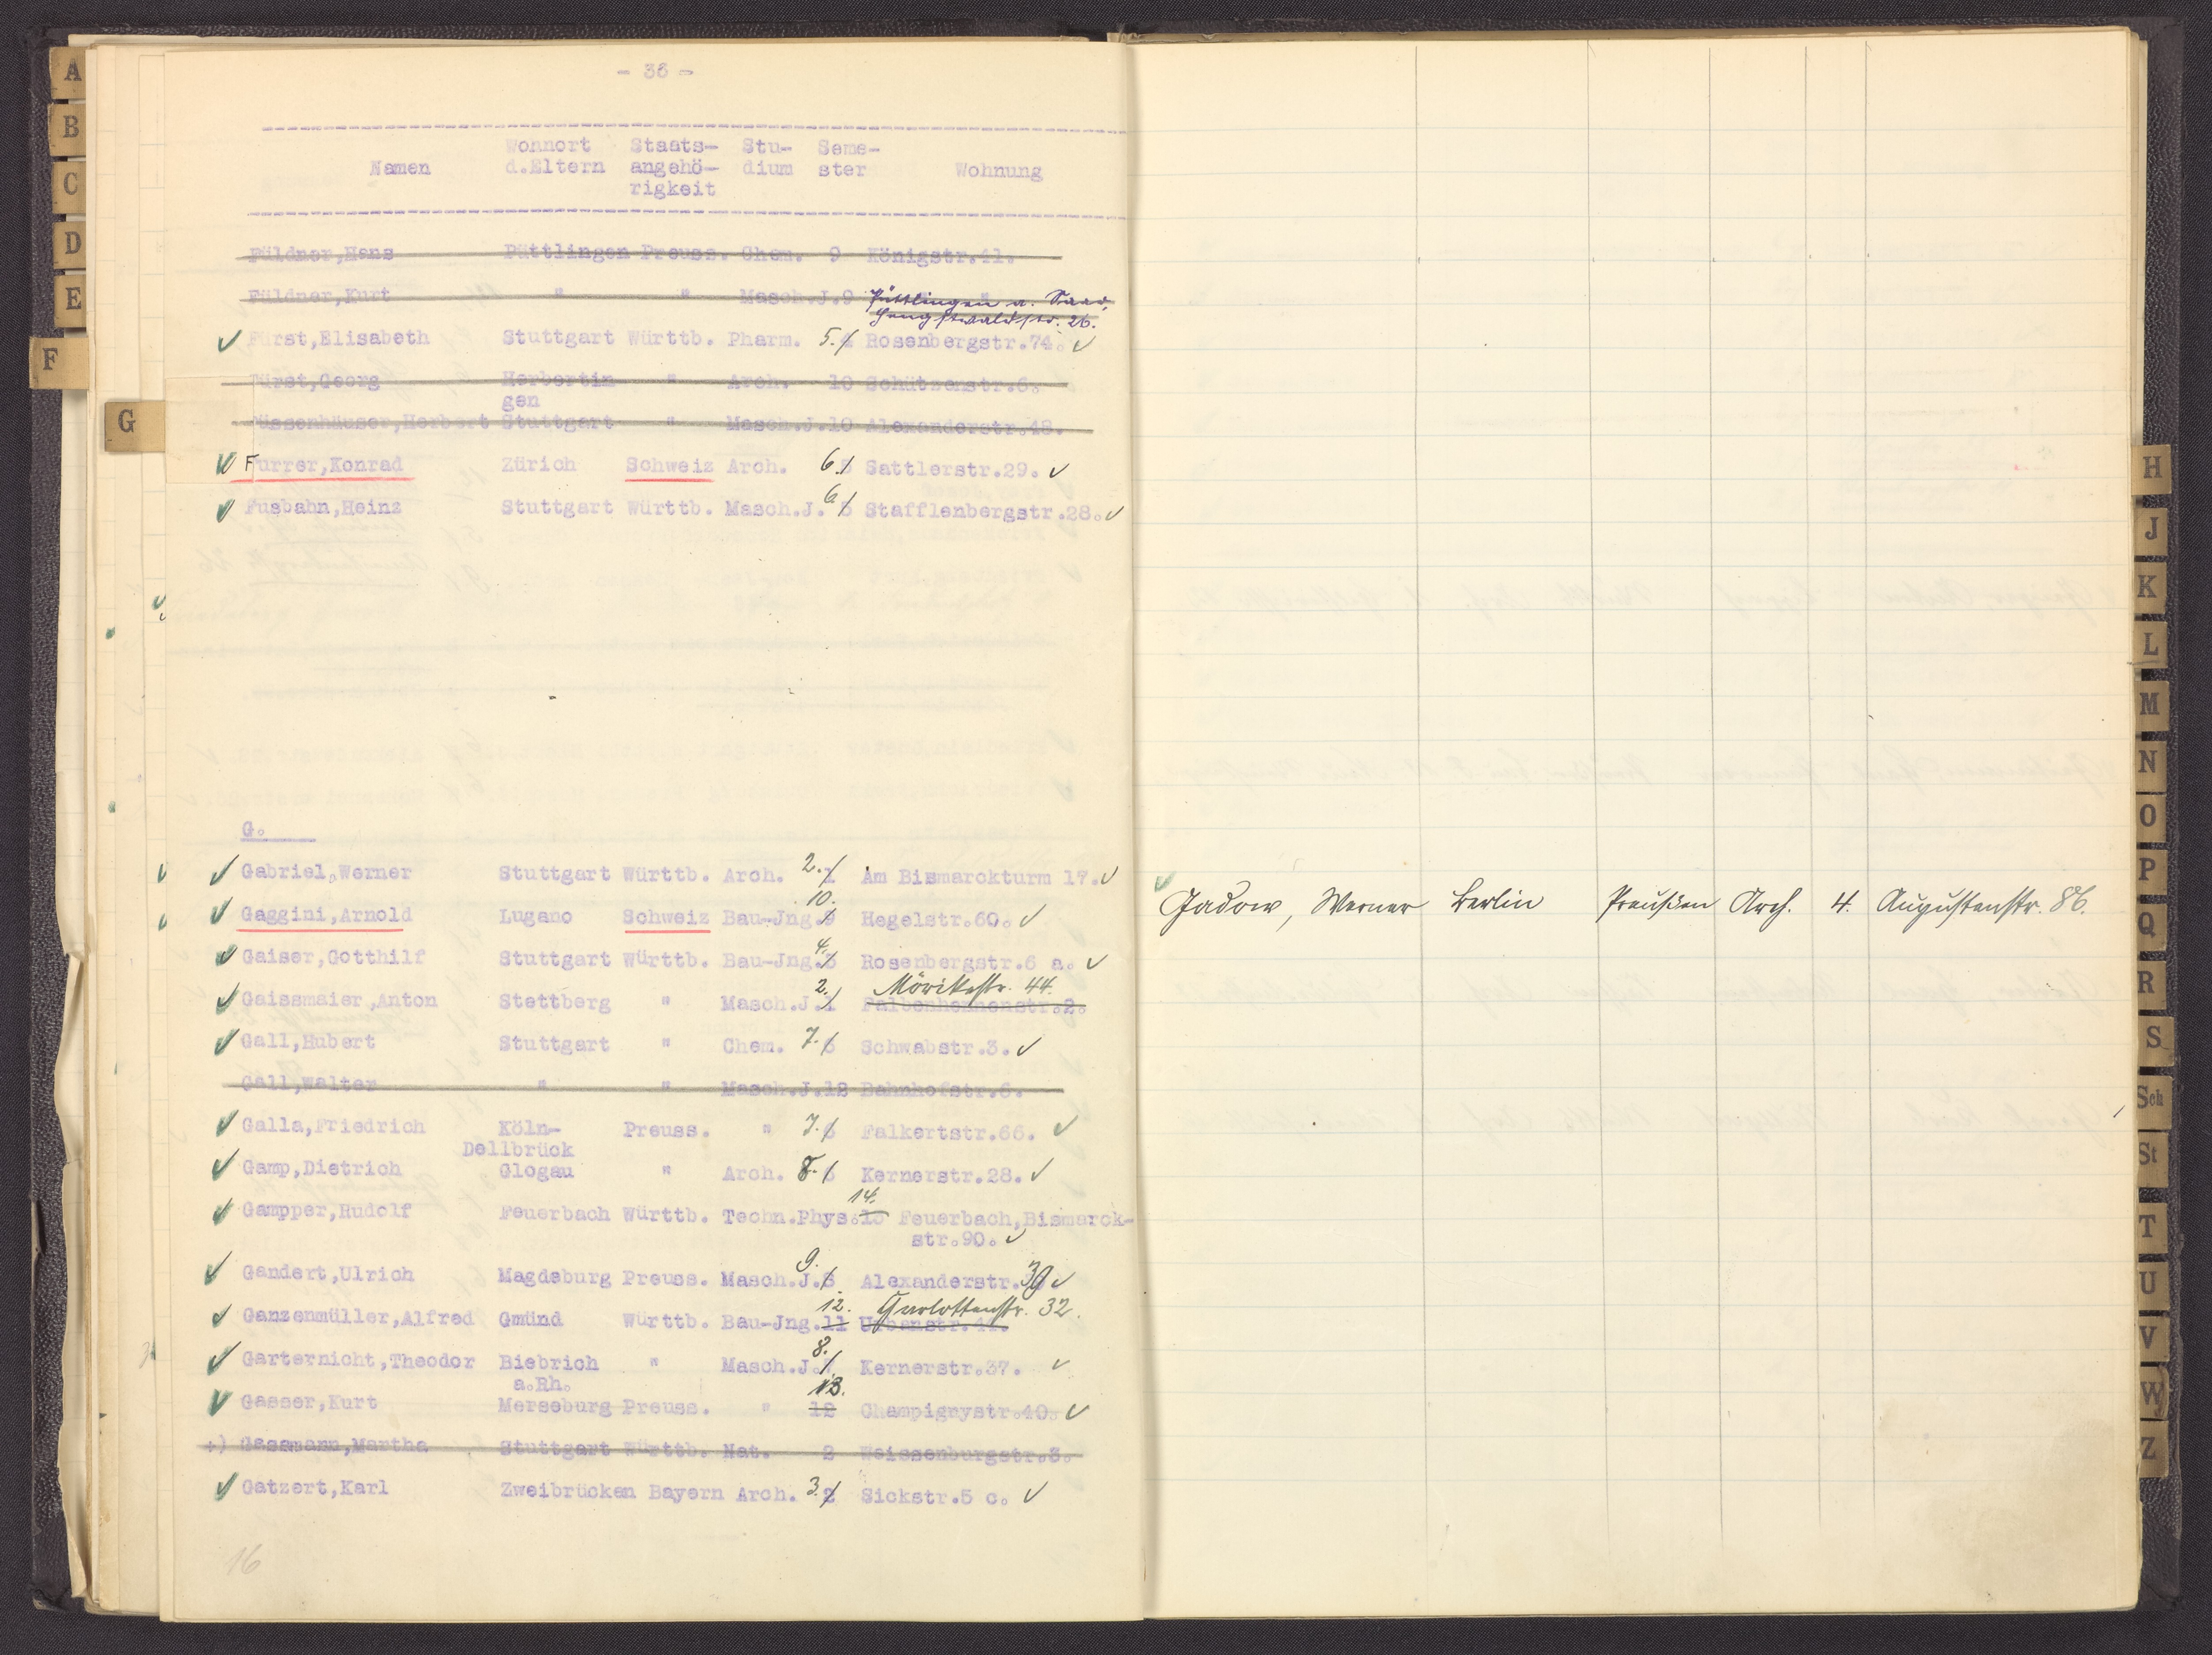 - 36 -
Namen Wohnort d.Eltern Staats-angehö-rigkeit Stu-dium Seme-ster Wohnung
Füldner,Hans Püttlingen Preuss. Chem. 9 Königstr.41.
Füldner,Kurt " " Masch.J.9 Püttlingen a. Saar,
26.
Fürst,Elisabeth Stuttgart Württb. Pharm. 5. 4 Rosenbergstr.74.
Fürst,Georg Herbertin " Arch. 10 Schützenstr.6.
gen
Füssenhäuser,Herbert Stuttgart " Masch.J.10 Alexanderstr.48.
Furrer,Konrad Zürich Schweiz Arch. 6. 5 Sattlerstr.29.
Fusbahn,Heinz Stuttgart Württb. Masch.J. 6 5 Stafflenbergstr.28.
G.
Gabriel,Werner Stuttgart Württb. Arch. 2. 1 Am Bismarckturm 17.
10.
Gaggini,Arnold Lugano Schweiz Bau-Jng.9 Hegelstr.60.
4.
Gaiser,Gotthilf Stuttgart Württb. Bau-Jng.3 Rosenbergstr.6 a.
2. Mörikestr. 44.
Gaissmaier,Anton Stettberg " Masch.J.1 Falbenhennenstr.2.
Gall,Hubert Stuttgart " Chem. 7. 6 Schwabstr.3.
Gall,Walter " " Masch.J.12 Bahnhofstr.6.
Galla,Friedrich Köln- Preuss. " 7. 6 Falkertstr.66.
Dellbrück
Gamp,Dietrich Glogau " Arch. 8. 6 Kernerstr.28.
14.
Gampper,Rudolf Feuerbach Württb. Techn.Phys.13 Feuerbach,Bismarck-
str.90.
9.
Gandert,Ulrich Magdeburg Preuss. Masch.J.8 Alexanderstr.39
12. Charlottenstr. 32.
Ganzenmüller,Alfred Gmünd Württb. Bau-Jng.11 Urbanstr.41.
8.
Garternicht,Theodor Biebrich " Masch.J.7 Kernerstr.37.
a.Rh. 13.
Gasser,Kurt Merseburg Preuss. " 12 Champignystr.40.
+) Gassmann,Martha Stuttgart Württb. Nat. 2 Weissenburgstr.3.
Gatzert,Karl Zweibrücken Bayern Arch. 3. 2 Sickstr.5 c.
16
Gadow, Werner Berlin Preußen Arch. 4. Augustenstr. 86.
A
B
C
D
E
F
G
H
J
K
L
M
N
O
P
Q
R
S
Sch
St
T
U
V
W
Z